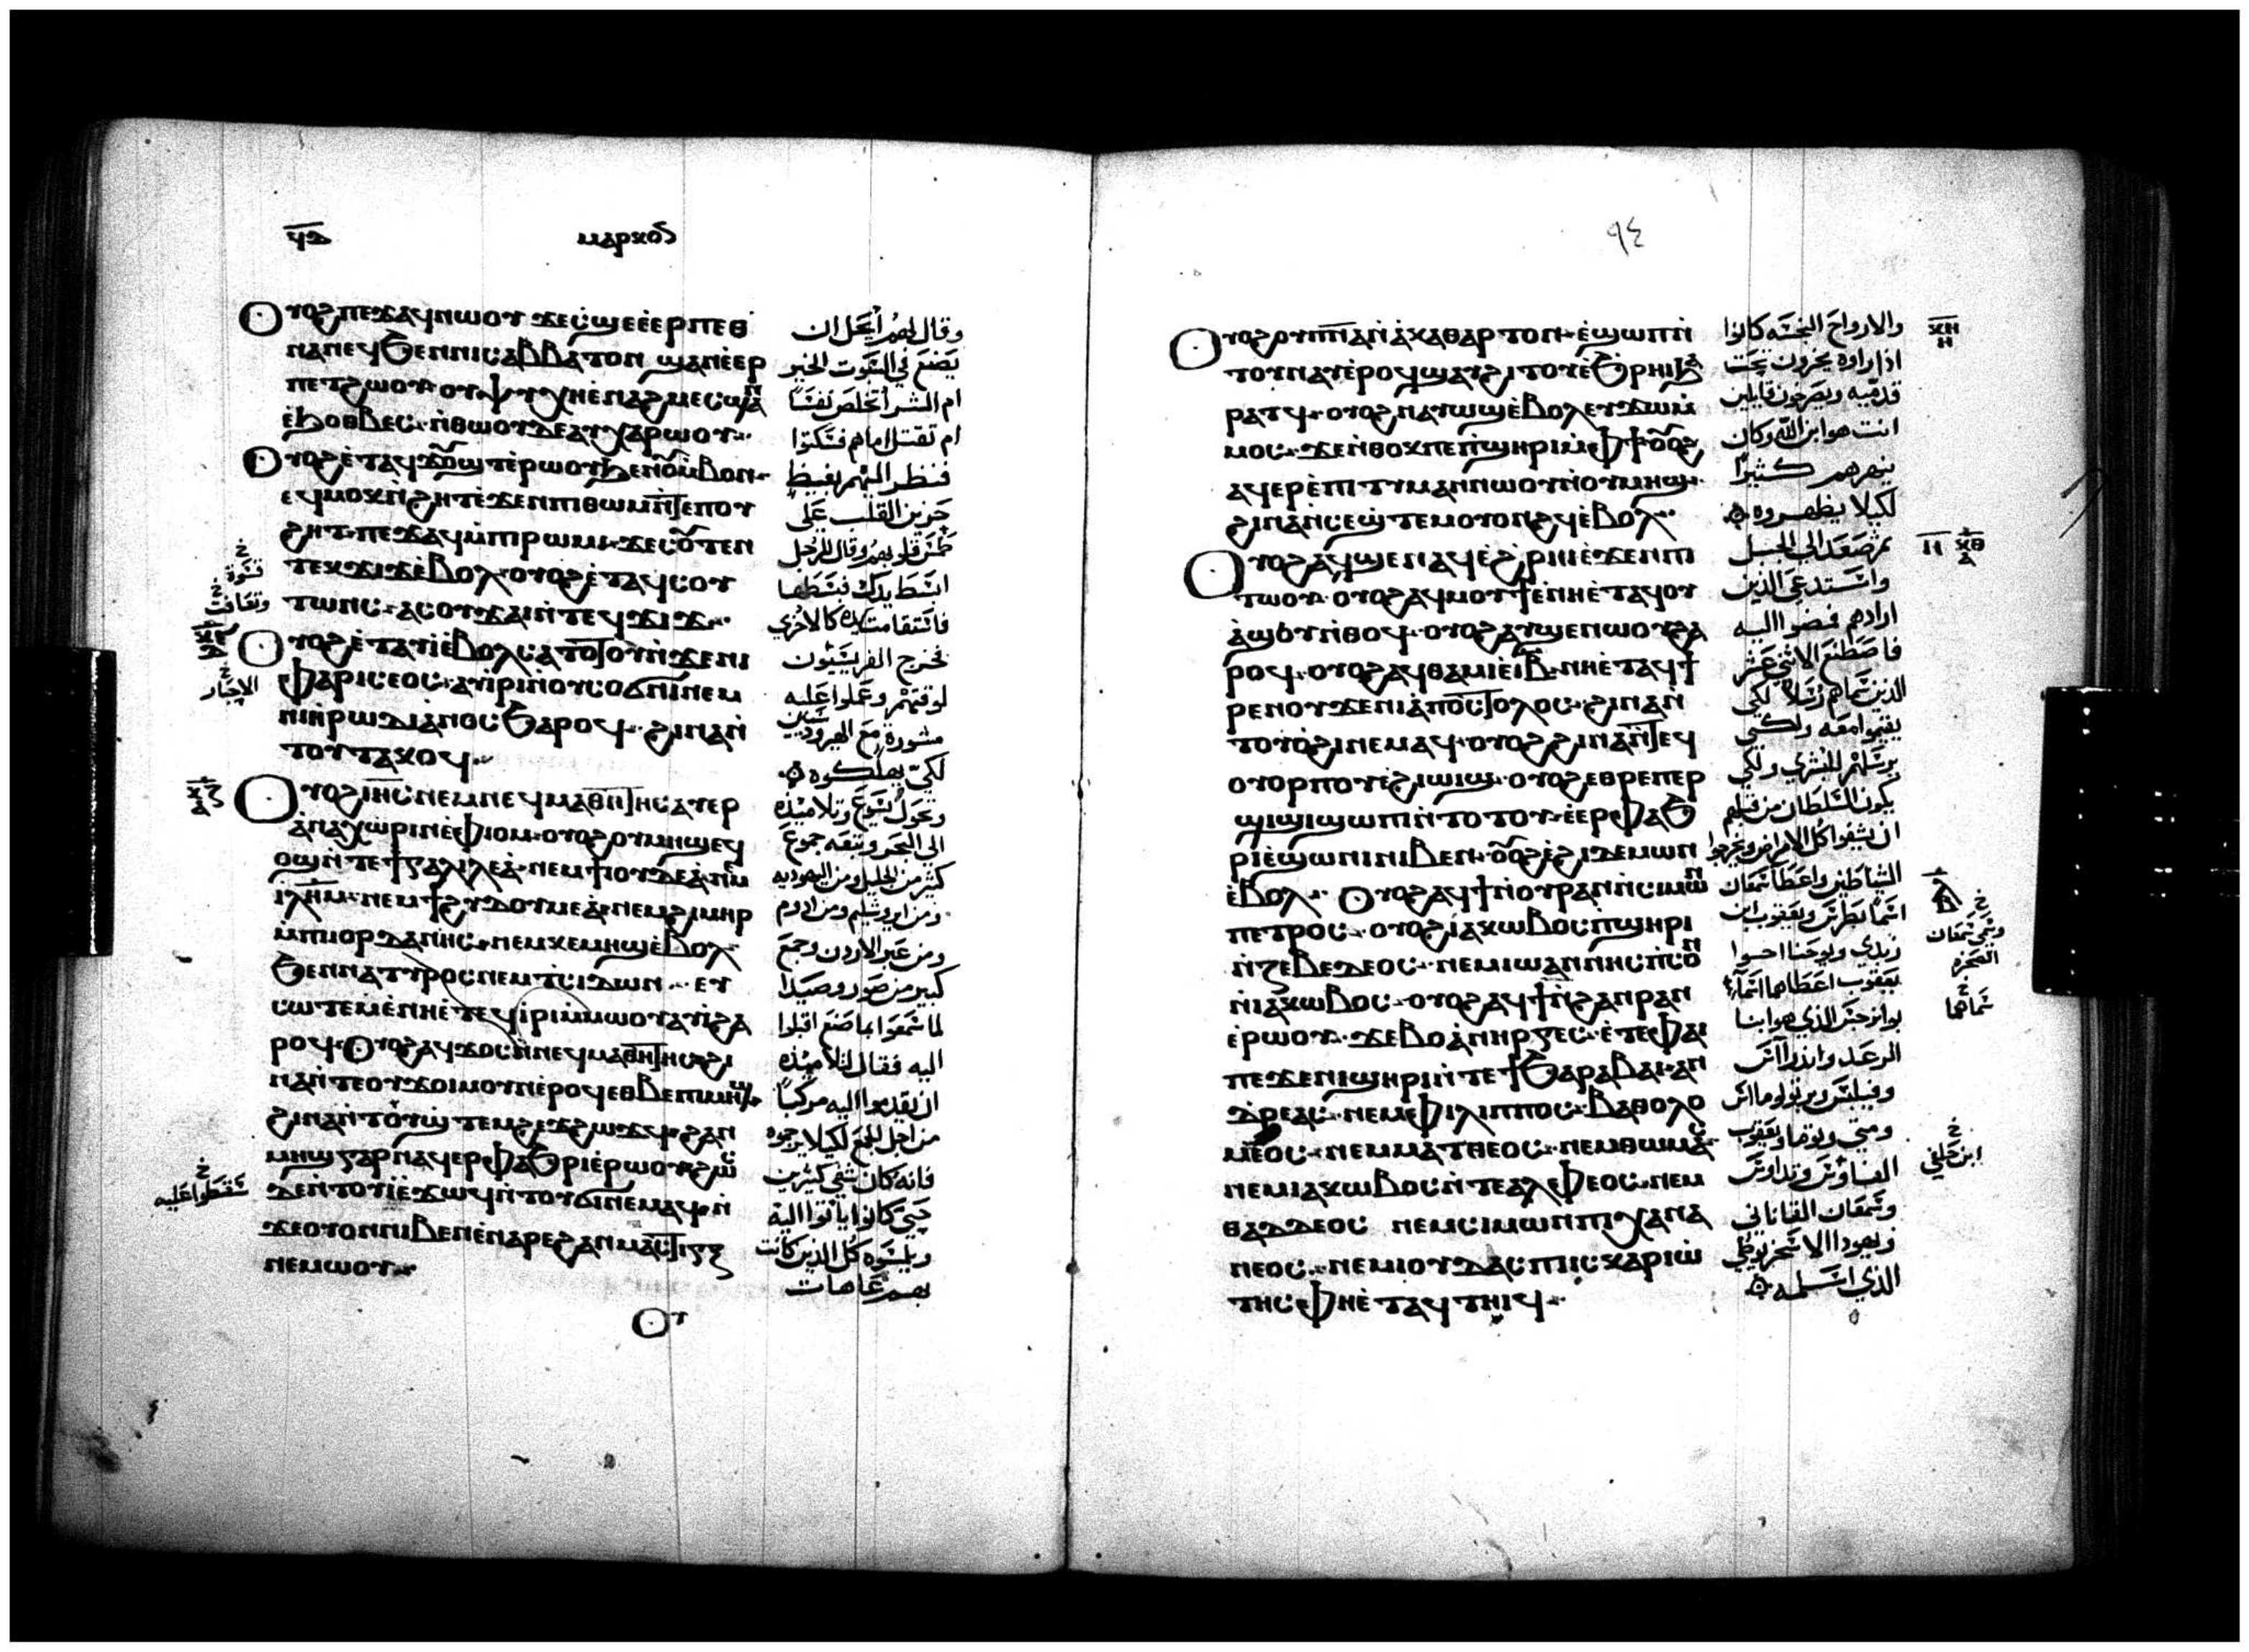 ϥⲇ
ⲙⲁⲣⲕⲟⲥ
Ⲟⲩⲟϩ ⲡⲉϫⲁϥ ⲛⲱⲟⲩ ϫⲉ ⲥϣⲉ ⲉⲉⲣⲡⲉⲑ
ⲛⲁⲛⲉϥ ϧⲉⲛ ⲛⲓⲥⲁⲃⲃⲁⲧⲟⲛ ϣⲁⲛ ⲉⲉⲣ
ⲡⲉⲧϩⲱⲟⲩ ⲟⲩⲯⲩⲭⲏ ⲉⲛⲁϩⲙⲉⲥ ϣⲁⲛ
ⲉϧⲟⲑⲃⲉⲥ ⲛⲑⲱⲟⲩ ⲇⲉ ⲁⲩⲭⲁⲣⲱⲟⲩ
Ⲟⲩⲟϩ ⲉⲧⲁϥϫⲟⲩϣⲧ ⲉⲣⲱⲟⲩ ϧⲉⲛ ⲟⲩⲙⲃⲟⲛ
ⲉϥⲙⲟⲕϩ ⲛϩⲏⲧ ⲉϫⲉⲛ ⲡⲓⲑⲱⲙ ⲛⲧⲉ ⲡⲟⲩ
ϩⲏⲧ ⲡⲉϫⲁϥ ⲙⲡⲓⲣⲱⲙⲓ ϫⲉ ⲥⲟⲩⲧⲉⲛ
ⲧⲉⲕϫⲓϫ ⲉⲃⲟⲗ ⲟⲩⲟϩ ⲉⲧⲁϥⲥⲟⲩ
ⲧⲱⲛⲥ ⲁⲥⲟⲩϫⲁⲓ ⲛⲧⲉϥϫⲓϫ
Ⲟⲩⲟϩ ⲉⲧⲁⲩⲓ ⲉⲃⲟⲗ ⲥⲁⲧⲟⲧⲟⲩ ⲛϫⲉ ⲛⲓ
ⲫⲁⲣⲓⲥⲉⲟⲥ ⲁⲩⲓⲣⲓ ⲛⲟⲩⲥⲟϭⲛⲓ ⲛⲉⲙ
ⲛⲓⲏⲣⲱⲇⲓⲁⲛⲟⲥ ϧⲁⲣⲟϥ ϩⲓⲛⲁ ⲛ
ⲧⲟⲩⲧⲁⲕⲟϥ
Ⲟⲩⲟϩ ⲓⲏⲥ ⲛⲉⲙ ⲛⲉϥⲙⲁⲑⲏⲧⲏⲥ ⲁⲩⲉⲣ
ⲁⲛⲁⲭⲱⲣⲓⲛ ⲉⲫⲓⲟⲙ ⲟⲩⲟϩ ⲟⲩⲙⲏϣ ⲉϥ
ⲟϣ ⲛⲧⲉ ϯⲅⲁⲗⲓⲗⲉⲁ ⲛⲉⲙ ϯⲓⲟⲩⲇⲉⲁ ⲛⲉⲙ
ⲓⲗⲏⲙ ⲛⲉⲙ ϯϩⲩⲇⲟⲩⲙⲉⲁ ⲛⲉⲙ ϩⲓⲙⲏⲣ
ⲙⲡⲓⲓⲟⲣⲇⲁⲛⲏⲥ ⲛⲉⲙ ⲕⲉⲙⲏϣ ⲉⲃⲟⲗ
ϧⲉⲛ ⲛⲁⲧⲩⲣⲟⲥ ⲛⲉⲙ ⲧⲥⲓⲇⲱⲛ ⲉⲩ
ⲥⲱⲧⲉⲙ ⲉⲛⲏⲉⲧⲉϥⲓⲣⲓ ⲙⲙⲱⲟⲩ ⲁⲩⲓ ϩⲁ
ⲣⲟϥ Ⲟⲩⲟϩ ⲁϥϫⲟⲥ ⲛⲛⲉϥⲙⲁⲑⲏⲧⲏⲥ ϩⲓ
ⲛⲁ ⲛⲧⲉ ⲟⲩϫⲟⲓ ⲙⲟⲩⲛ ⲉⲣⲟϥ ⲉⲑⲃⲉ ⲡⲓⲙⲏϣ
ϩⲓⲛⲁ ⲛⲧⲟⲩϣⲧⲉⲙϩⲉϫϩⲱϫϥ ϩⲁⲛ
ⲙⲏϣ ⲅⲁⲣ ⲛⲁϥⲉⲣⲫⲁϧⲣⲓ ⲉⲣⲱⲟⲩ ϩⲱⲥ
ⲇⲉ ⲛⲧⲟⲩⲓ ⲉϫⲱϥ ⲛⲧⲟⲩϭⲓ ⲛⲉⲙⲁϥ ⲛ
ϫⲉ ⲟⲩⲟⲛ ⲛⲓⲃⲉⲛ ⲉⲛⲁⲣⲉ ϩⲁⲛⲙⲁⲥⲧⲓⲅⲝ
ⲛⲉⲙⲱⲟⲩ
Ⲟⲩ
وقال لهم ايحل ان
يصنع في السبوت الخير
ام الشر أتخلص نفسًا
ام تقتل اما هم فسكتوا
فنظر اليهم بغيظ
حزين القلب على
طمس قلوبهم وقال للرجل
ابسط يدك فبسطها
فاستقامت يده كالاخري
فخرج الفريسيون
لوقتهم وعملوا عليه
مشورة مع الهيرودسيين
لكي يهلكوه
وتحول يسوع وتلاميذه
الى البحر وتبعه جموع
كثير من الجليل ومن اليهوديه
ومن ايروشليم ومن ادوم
ومن عبر الاردن وجمع
كبير من صور وصيدا
لما سمعوا بما صنع اقبلوا
اليه فقال لتلاميذه
ان يقدموا اليه مركبًا
من اجل الجمع لكيلا يزحموه
فانه كان شفي كثيرين
حتى كانوا ياتوا اليه
ويلمسوه كل الذين كانت
بهم عاهات
قسوة
وتعافت
الاحبار
سقطوا عليه
ⲕⲍ
ⲁ
٩٤
Ⲟⲩⲟϩ ⲟⲩⲡⲛⲁ ⲛⲁⲕⲁⲑⲁⲣⲧⲟⲛ ⲉϣⲱⲡ ⲛ
ⲧⲟⲩⲛⲁⲩ ⲉⲣⲟϥ ϣⲁⲩϩⲓⲧⲟⲩ ⲉϧⲣⲏⲓ ϧⲁ
ⲣⲁⲧϥ ⲟⲩⲟϩ ⲛⲁⲩⲱϣ ⲉⲃⲟⲗ ⲉⲩϫⲱⲙ
ⲙⲟⲥ ϫⲉ ⲛⲑⲟⲕ ⲡⲉ ⲡϣⲏⲣⲓ ⲙⲫϯ ⲟⲩⲟϩ
ⲁϥⲉⲣⲉⲡⲓⲧⲩⲙⲁⲛ ⲛⲱⲟⲩ ⲛⲟⲩⲙⲏϣ
ϩⲓⲛⲁ ⲛⲥⲉϣⲧⲉⲙⲟⲩⲟⲛϩϥ ⲉⲃⲟⲗ
Ⲟⲩⲟϩ ⲁϥϣⲉⲛⲁϥ ⲉϩⲣⲏⲓ ⲉϫⲉⲛ ⲡⲓ
ⲧⲱⲟⲩ ⲟⲩⲟϩ ⲁϥⲙⲟⲩϯ ⲉⲛⲏⲉⲧⲁϥⲟⲩ
ⲁϣⲟⲩ ⲛⲑⲟϥ ⲟⲩⲟϩ ⲁⲩϣⲉⲛⲱⲟⲩ ϩⲁ
ⲣⲟϥ ⲟⲩⲟϩ ⲁϥⲑⲁⲙⲓⲉ ⲓⲃ ⲛⲏⲉⲧⲁϥϯ
ⲣⲉⲛⲟⲩ ϫⲉ ⲛⲓⲁⲡⲟⲥⲧⲟⲗⲟⲥ ϩⲓⲛⲁ ⲛ
ⲧⲟⲩⲟϩⲓ ⲛⲉⲙⲁϥ ⲟⲩⲟϩ ϩⲓⲛⲁ ⲛⲧⲉϥ
ⲟⲩⲟⲣⲡⲟⲩ ⲉϩⲓⲱⲓϣ ⲟⲩⲟϩ ⲉⲑⲣⲉ ⲡⲉⲣ
ϣⲓϣⲓ ϣⲱⲡⲓ ⲛⲧⲟⲧⲟⲩ ⲉⲉⲣⲫⲁϧ
ⲣⲓ ⲉϣⲱⲛⲓ ⲛⲓⲃⲉⲛ ⲟⲩⲟϩ ⲉϩⲓ ⲇⲉⲙⲱⲛ
ⲉⲃⲟⲗ Ⲟⲩⲟϩ ⲁϥϯ ⲛⲟⲩⲣⲁⲛ ⲛⲥⲓⲙⲱⲛ
ⲡⲉⲧⲣⲟⲥ ⲟⲩⲟϩ ⲓⲁⲕⲱⲃⲟⲥ ⲡϣⲏⲣⲓ
ⲛⲍⲉⲃⲉⲇⲉⲟⲥ ⲛⲉⲙ ⲓⲱⲁⲛⲛⲏⲥ ⲡⲥⲟⲛ
ⲛⲓⲁⲕⲱⲃⲟⲥ ⲟⲩⲟϩ ⲁϥϯ ⲛϩⲁⲛⲣⲁⲛ
ⲉⲣⲱⲟⲩ ϫⲉ ⲃⲟⲁⲛⲏⲣⲅⲉⲥ ⲉⲧⲉ ⲫⲁⲓ
ⲡⲉ ϫⲉ ⲛⲓϣⲏⲣⲓ ⲛⲧⲉ ϯϧⲁⲣⲁⲃⲁⲓ ⲁⲛ
ⲇⲣⲉⲁⲥ ⲛⲉⲙ ⲫⲓⲗⲓⲡⲡⲟⲥ ⲃⲁⲑⲟⲗⲟ
ⲙⲉⲟⲥ ⲛⲉⲙ ⲙⲁⲧⲑⲉⲟⲥ ⲛⲉⲙ ⲑⲱⲙⲁⲥ
ⲛⲉⲙ ⲓⲁⲕⲱⲃⲟⲥ ⲛⲧⲉ ⲁⲗⲫⲉⲟⲥ ⲛⲉⲙ
ⲑⲁⲇⲇⲉⲟⲥ ⲛⲉⲙ ⲥⲓⲙⲱⲛ ⲡⲓⲭⲁⲛⲁ
ⲛⲉⲟⲥ ⲛⲉⲙ ⲓⲟⲩⲇⲁⲥ ⲡⲓⲓⲥⲕⲁⲣⲓⲱ
ⲧⲏⲥ ⲫⲏⲉⲧⲁϥⲧⲏⲓϥ
والارواح النجسه كانوا
اذا راوه يخرون تحت
قدميه ويصرخون قايلين
انت هو ابن الله وكان
ينهرهم كثيرًا
لكيلا يظهروه
ثم صعد الى الجبل
واستدعى الذين
ارادهم فمضوا اليه
فاصطنع الاثنى عشر
الذين سماهم رسلاً لكي
يقيموا معه ولكي
يرسلهم للبشري ولكي
يكون السلطان من قبلهم
ان يشفوا كل الامراض ويخرجوا
الشياطين واعطا سمعان
اسمًا بطرس ويعقوب ابن
زبدي ويوحنا اخوا
يعقوب اعطاهما اسماء
بوانرجس الذي هو ابنا
الرعد واندراس
وفيلبس وبرتولوماس
ومتى وتوما ويعقوب
الفاوس وتداوس
وسمعان القاناني
ويهودا الاسخريوطي
الذي اسلمه
ⲕⲏ
ⲏ
ⲕⲑ
ⲁ
ⲏ
وسمي سمعان
الصخره
سماهما
ابن حلفى